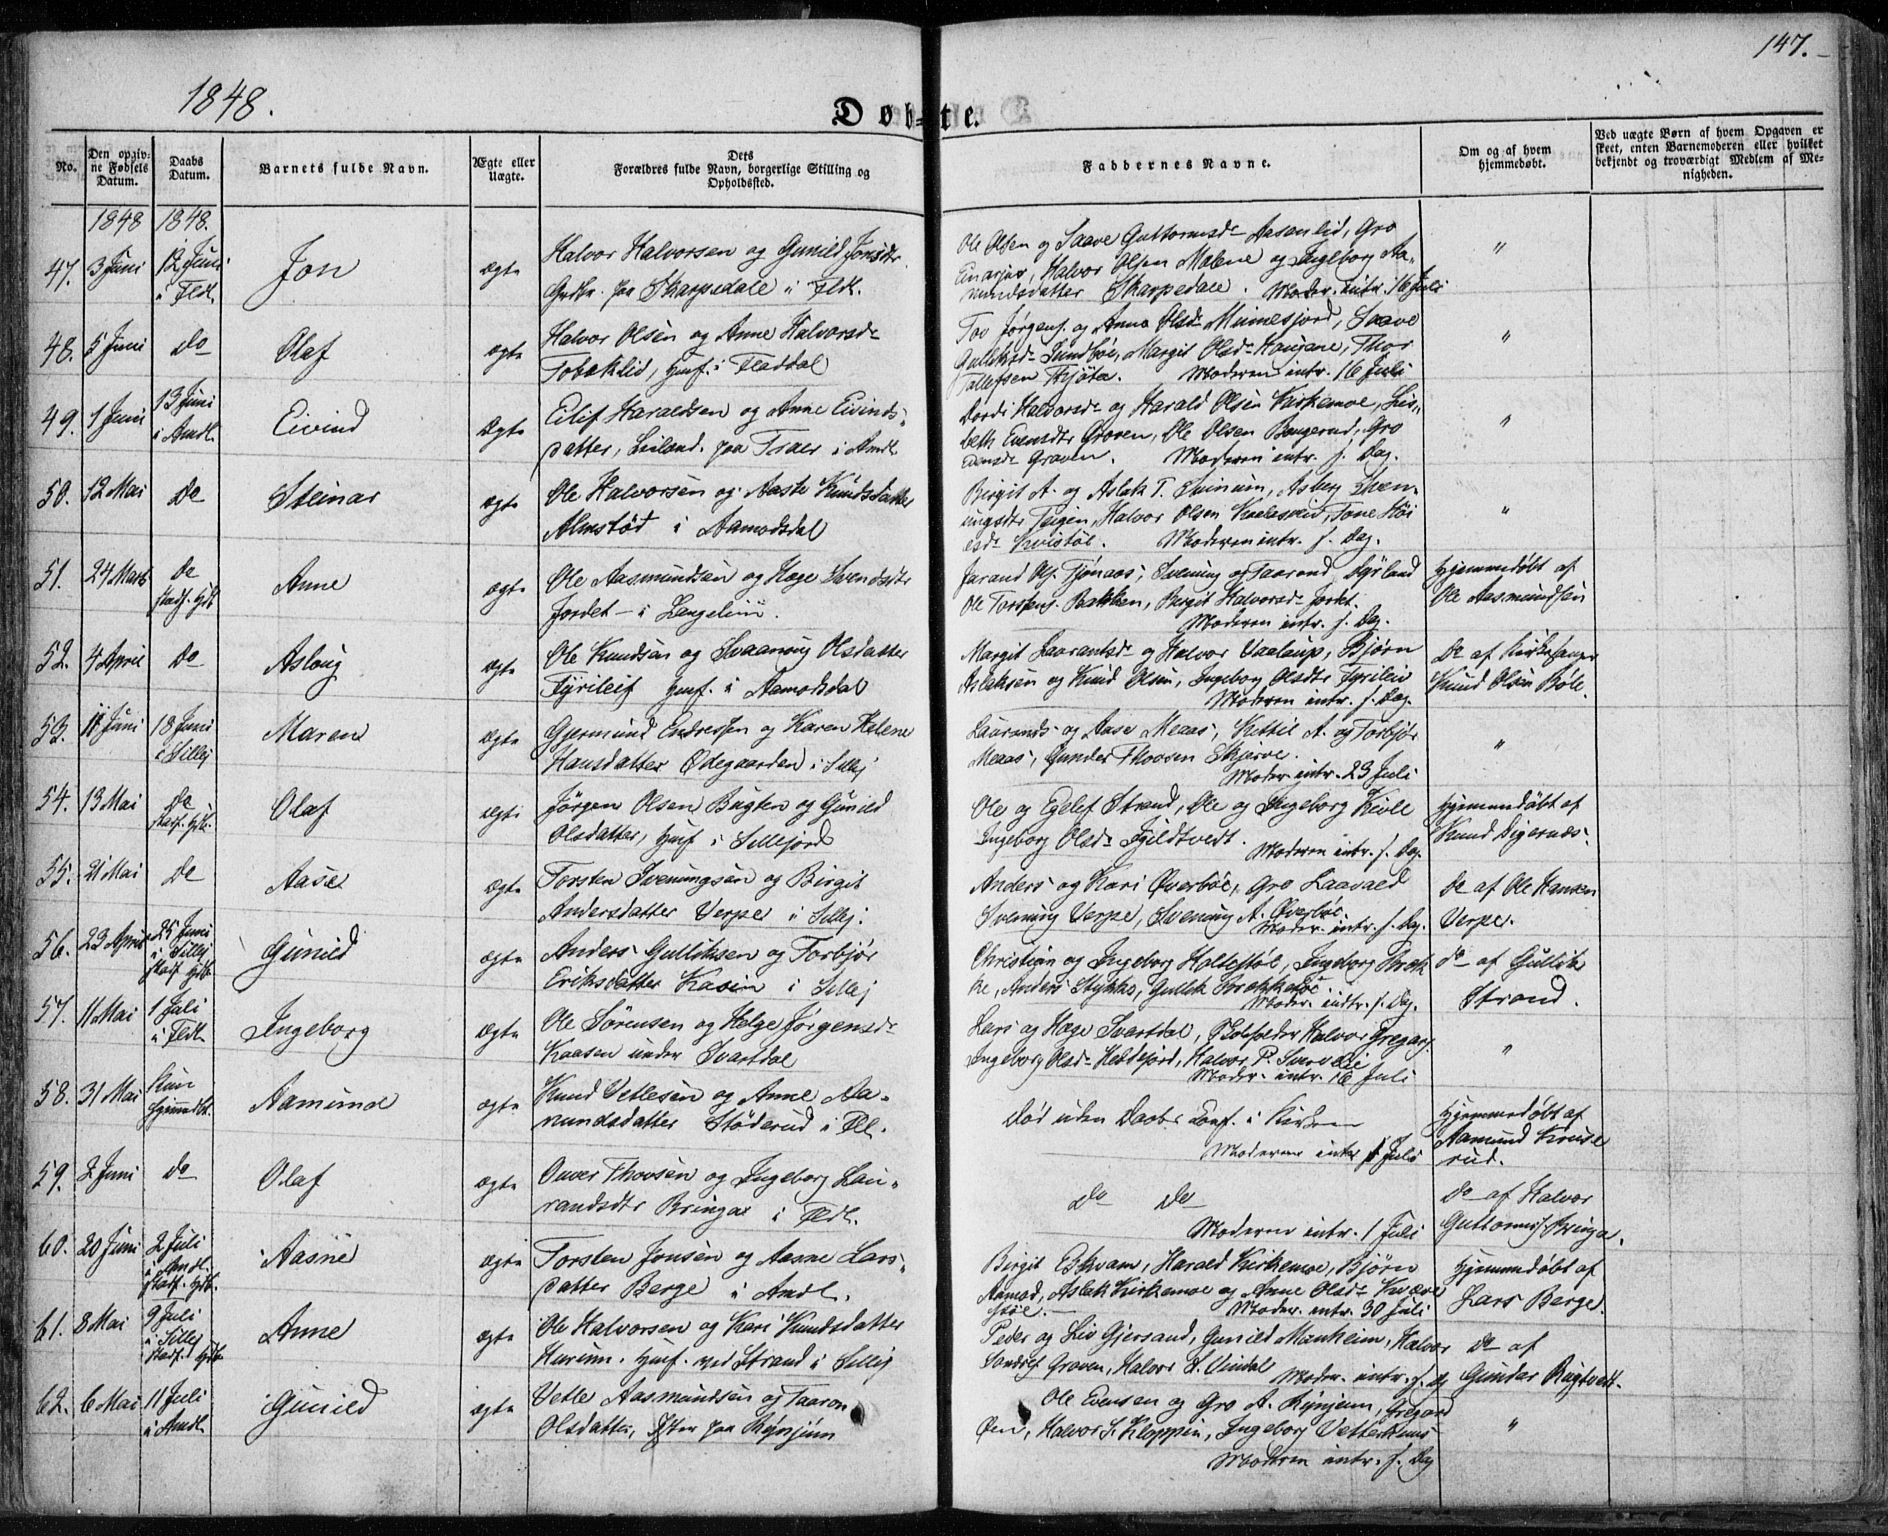 147.
1848.
Døbte.
No.
Den opgivne Fødsels Datum.
Daabs Datum.
Barnets fulde Navn.
Ægte eller Uægte.
Dets Forældres fulde Navn, borgerlige Stilling og Opholdssted.
Faddernes Navne.
Om og af hvem hjemmedøbt.
Ved uægte Børn af hvem Opgaven er skeet, enten Barnemoderen eller hvilket bekjendt og troværdigt Medlem af Menigheden.
1848 1848.
47. 3 Juni 12 Juni i Fldl. Jon ægte
Halvor Halvorsen og Gunild Jonsdtr
Grdbr. paa Skarpedale i Fldl.
Ole Olsen og Saave Guttormsdr Aasanlid, Gro
Einarsjus, Halvor Olsen Molene og Ingeborg Aa-
mundsdatter Skarpedale. Moder. intr. 16 Juli
"
48. 5 Juni do Olaf ægte
Halvor Olsen og Anne Halvorsdr
Tobaklid, Huf. i Fladdal
Tov Jørgens. og Anne Olsdr Mimesjord, Saave
Gulleksdr Sundbøe, Margit Olsdr Haugane, Thor
Tollefsen Thjøta. Moderen intr. 16 Juli
"
49. 1 Juni 13 Juni i Amdl. Eivind ægte
Eilif Haraldsen og Anne Eivinds-
datter, Leilænd. paa Traaer i Amdl.
Dordi Halvorsdr og Harald Olsen Kirkemoe, Lis-
beth Evensdtr Groven, Ole Olsen Bougerud, Gro
Evensdr Groven. Moderen intr. s. Dag.
"
50. 12 Mai do Steinar ægte
Ole Halvorsen og Aaste Knudsdatter
Almstød i Aamodsdal
Birgit A. og Aslak T. Svinum, Asberg Sven-
ungsdtr Teigen, Halvor Olsen
Kvistøl. Moderen intr. s. Dag.
"
51. 24 Marts do stadf. Hjdb. Anne ægte
Ole Aasmundsen og Hæge Svendsdtr
Jordet i Langeleim.
Jarand Ols. Tjønaas, Svenung og Taarand Dyrland
Ole Torstens. Bakken, Birgit Halvorsdr Jordet.
Moderen intr. s. Dag.
Hjemmedøbt af
Ole Aasmundsen
52. 4 April do Aslaug ægte
Ole Knudsen og Svaanaug Olsdatter
Fyrileif Huf. i Aamodsdal
Margit Laurantsdr og Halvor Vaalaup, Bjørn
Aslaksen og Knud Olsen, Ingeborg Olsdtr Fyrileiv
Moderen intr. s. Dag.
do af Kirkesanger
Knud Olsen Bøle.
53. 11 Juni 18 Juni i Sillej Maren ægte
Gjermund Endresen og Karen Helene
Hansdatter Ødegaarden i Sillej
Laurands og Aase Meaas, Kettil A. og Torbjør
Meaas, Gunder Thovsen Skjerve.
Moder. intr. 23 Juli
"
54. 13 Mai do stadf. Hjdb. Olaf ægte
Jørgen Olsen Bugten og Gunild
Olsdatter, Huf i Sillejord
Ole og Egelef Strand, Ole og Ingeborg Kivle
Ingeborg Olsdr Fjeldtvedt. Moderen intr. s. Dag.
Hjemmedøbt af
Knud Digernæs.
55. 21 Mai do Aase ægte
Torsten Svenungsen og Birgit
Andersdatter Verpe i Sillej.
Anders og Kari Øverbøe, Gro Laavald
Svenung Verpe, Svenung A. Øverbøe.
Moder. intr. s. Dag.
do af Ole Hansen
Verpe.
56. 23 April 25 Juni i Sillej stadf. Hjdb. Gunild ægte
Anders Gulliksen og Torbjør
Eriksdatter Kasin i Sillej
Christian og Ingeborg Holtestøl, Ingeborg Brok-
ke, Anders Stykko, Gullik
Moder. intr. s. Dag.
do af Gullik
Strand.
57. 11 Mai 1 Juli i Fldl. Ingeborg ægte
Ole Sørensen og Helge Jørgensdr
Kaasen under Svartdal
Lars og Hæge Svartdal, Skoleholder Halvor Gregars.
Ingeborg Olsdr Heddejord, Halvor P.
Moder. intr. 16 Juli
"
58. 31 Mai kun hjemmedbt. Aamund ægte
Knud Vetlesen og Anne Aa-
mundsdatter Støderud i Fldl.
Død uden Daabs Conf. i Kirken
Moderen intr. 1 Juli
Hjemmedøbt af
Aamund Kruse-
rud.
59. 2 Juni do Olaf ægte
Ouver Thovsen og Ingeborg Lau-
randsdtr Bringa i Fldl.
do do
Moderen intr. 1 Juli
do af Halvor
Guttorms. Bringa.
60. 20 Juni 2 Juli i Amdl. stadf. Hjdb. Aasne ægte
Torsten Jonsen og Aasne Lars-
datter Berge i Amdl.
Birgit Eskvam, Harald Kirkemoe, Bjørn
Aamod, Aslak Kirkemoe og Anne Olsdr
støl. Moder. intr. 30 Juli
Hjemmedøbt af
Lars Berge.
61. 8 Mai 9 Juli i Sillej stadf. Hjdb. Anne ægte
Ole Halvorsen og Kari Knudsdatter
Hurum. Huf. ved Strand i Sillej
Peder og Liv Gjersand, Gunild Manheim, Halvor
Sondres. Groven, Halvor S. Vindal Moder. intr. s. Dg
do af
Gunder Rugtvedt.
62. 6 Mai 11 Juli i Amdl. Gunild ægte
Vetle Aasmundsen og Taaron
Olsdatter, paa Rynjum
Ole Evensen og Gro A. Rynjum, Gregard
Øen, Halvor S. Kloppen, Ingeborg
Moderen intr. s. Dag
"